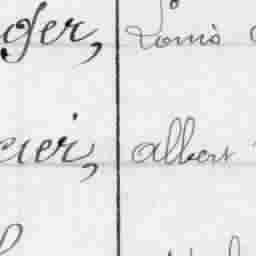 ger, Louis
cier, albert